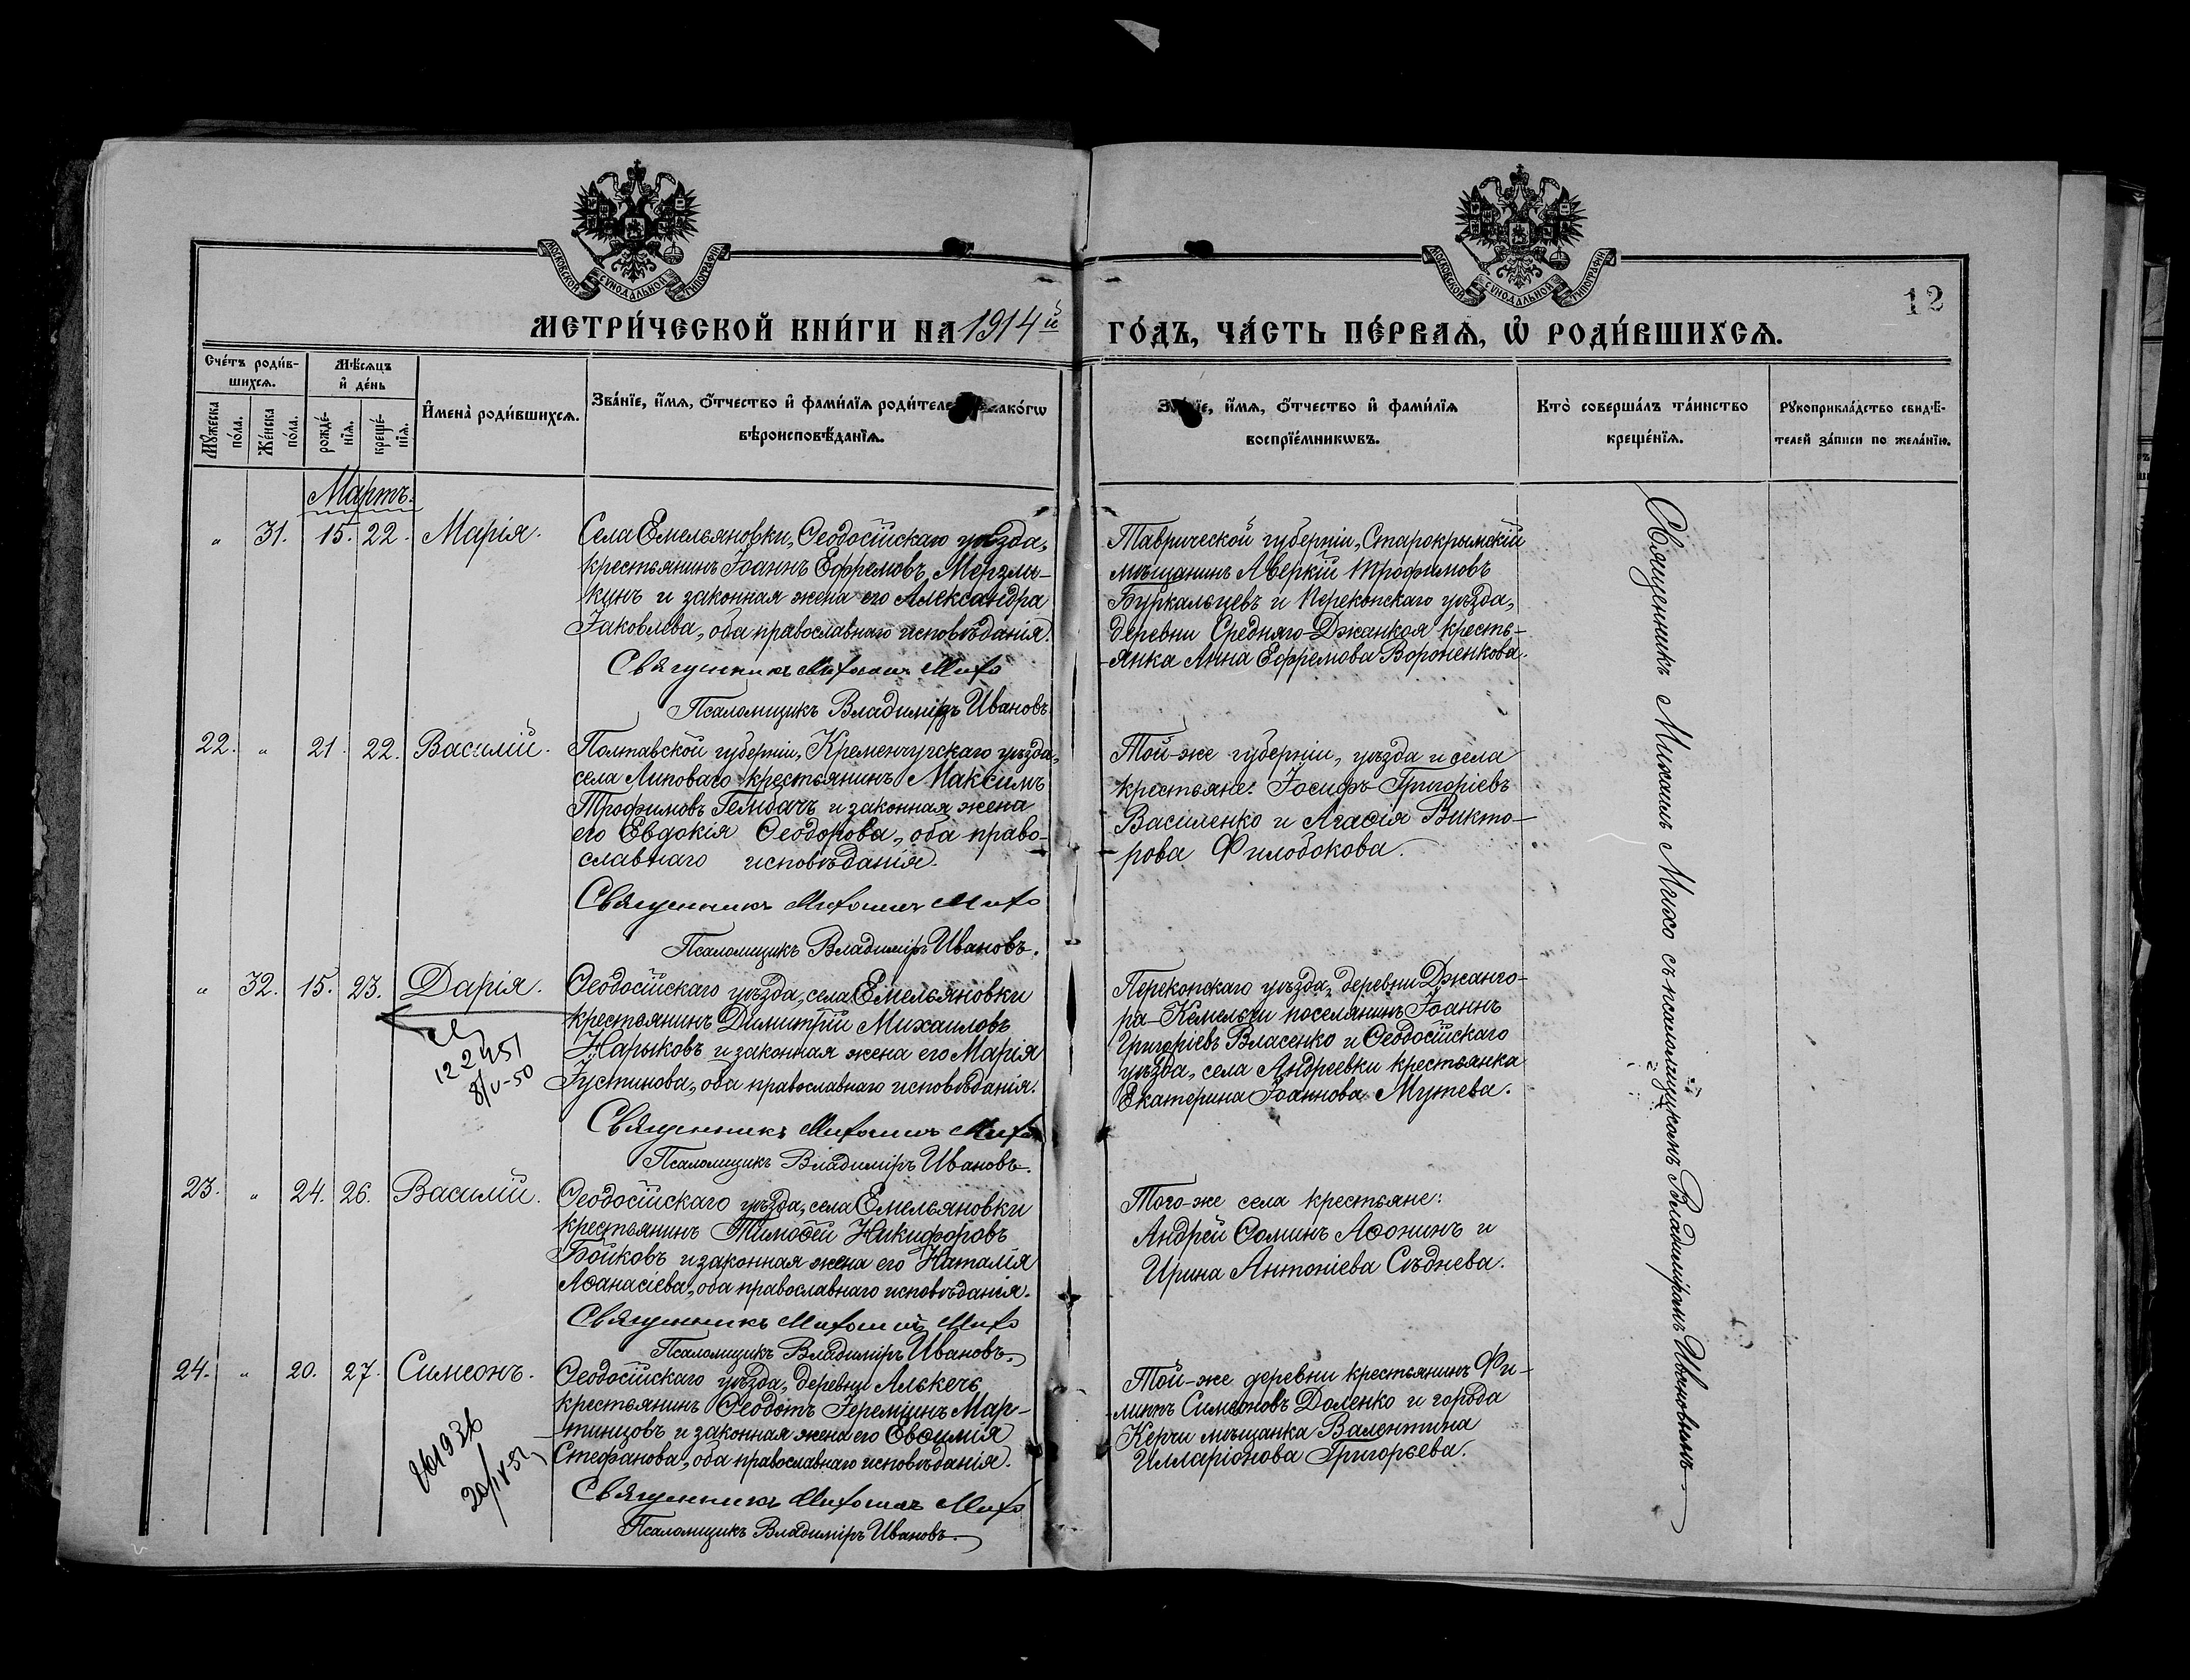 МОСКОВСКОЙ СѴНОДАЛЬНОЙ ТИПОГРАФІИ
МОСКОВСКОЙ СѴНОДАЛЬНОЙ ТИПОГРАФІИ
12
МЕТРИ́ЧЕСКОЙ КНИ́ГИ НА 1914й
ГО́ДЪ, ЧА́СТЬ ПЕ́РВАѦ, Ѡ҆ РОДИ́ВШИХСѦ.
Сче́тъ роди́в-
шихсѧ.
Мѣ́сѧцъ
и҆ де́нь
Мꙋ́жеска
по́ла.
Же́нска
по́ла.
рожде́-
нїѧ.
креще́-
нїѧ.
И҆мена̀ роди́вшихсѧ.
Зва́нїе, и҆́мѧ, ѻ҆́тчество и҆ фами́лїѧ роди́теле
како́гѡ
вѣроисповѣ́данїѧ.
и҆́мѧ, ѻ҆́тчество и҆ фами́лїѧ
воспрїе́мникѡвъ.
Кто̀ соверша́лъ та́инство
креще́нїѧ.
Рꙋкоприкла́дство свидѣ́-
телей за́писи по жела́нїю.
Мартъ.
" 31. 15. 22. Марія.
Села Емельяновки, Ѳеодосійскаго уѣзда,
крестьянинъ Іоаннъ Ефремовъ Мерзлы-
кинъ и законная жена его Александра
Іаковлева, оба православнаго исповѣданія.
Священникъ Михаилъ Михо
Псаломщикъ Владиміръ Ивановъ
Таврической губерніи, Старокрымскій
мѣщанинъ Аверкій Трофимовъ
Буркальцевъ и Перекопскаго уѣзда,
деревни Средняго-Джанкоя кресть-
янка Анна Ефремова Вороненкова.
22. " 21. 22. Василій.
Полтавской губерніи, Кременчугскаго уѣзда,
села Липоваго крестьянинъ Максимъ
Трофимовъ Гелибачъ и законная жена
его Евдокія Ѳеодорова, оба право-
славнаго исповѣданія.
Священникъ Михаилъ Михо
Псаломщикъ Владиміръ Ивановъ.
Той-же губерніи, уѣзда и села
крестьяне: Іосифъ Григоріевъ
Василенко и Агаѳія Викто-
рова Филобокова.
" 32. 15. 23. Дарія.
Ѳеодосійскаго уѣзда, села Емельяновки
крестьянинъ Димитрій Михаиловъ
Нарыковъ и законная жена его Марія
Іустинова, оба православнаго исповѣданія.
Священникъ Михаилъ Михо
Псаломщикъ Владиміръ Ивановъ.
8/V-50
Перекопскаго уѣзда, деревни Джанго-
ра-Кемельчи поселянинъ Іоаннъ
Григоріевъ Власенко и Ѳеодосійскаго
уѣзда, села Андреевки крестьянка
Екатерина Іоаннова Мутева.
23. " 24. 26. Василій.
Ѳеодосійскаго уѣзда, села Емельяновки
крестьянинъ Тимоѳей Никифоровъ
Бойковъ и законная жена его Наталія
Аѳанасіева, оба православнаго исповѣданія.
Священникъ Михаилъ Михо
Псаломщикъ Владиміръ Ивановъ.
Того-же села крестьяне:
Андрей Ѳоминъ Аѳонинъ и
Ирина Антоніева Сѣднева.
24. " 20. 27. Симеонъ.
Ѳеодосійскаго уѣзда, деревни Алькечь
крестьянинъ Ѳеодотъ Іереміинъ Мар-
тинцовъ и законная жена его Евѳимія
Стефанова, оба православнаго исповѣданія.
Священникъ Михаилъ Михо
Псаломщикъ Владиміръ Ивановъ.
Той-же деревни крестьянинъ Фи-
липпъ Симеоновъ Доленко и города
Керчи мѣщанка Валентина
Илларіонова Григорьева.
Священникъ Михаилъ Михо съ псаломщикомъ Владиміромъ Ивановымъ